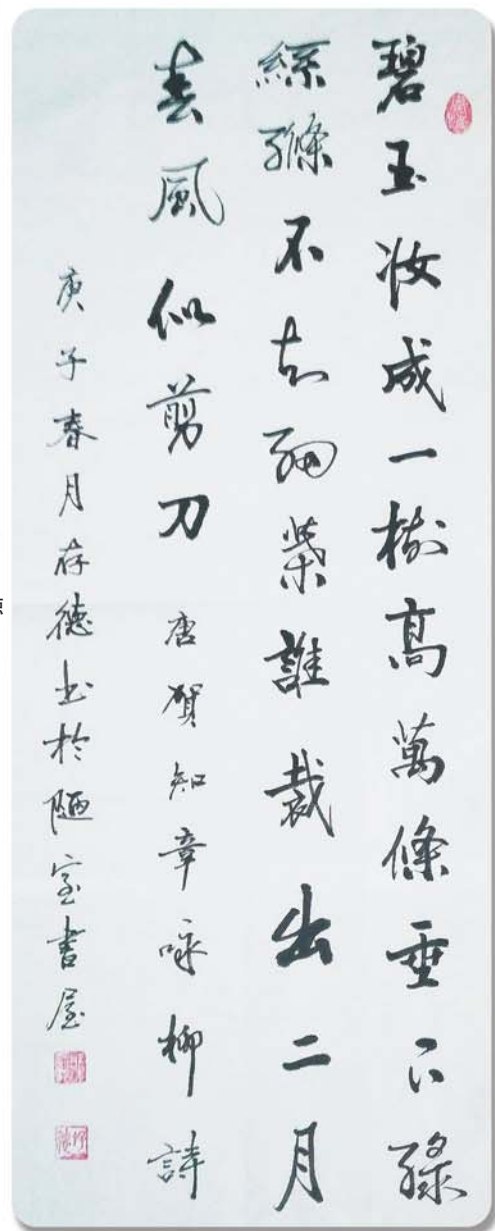 碧玉妆成一樹高萬條垂下綠
絲縧不知細葉誰裁出二月
春風似剪刀 唐賀知章咏柳詩
庚子春月存德书於陋室書屋